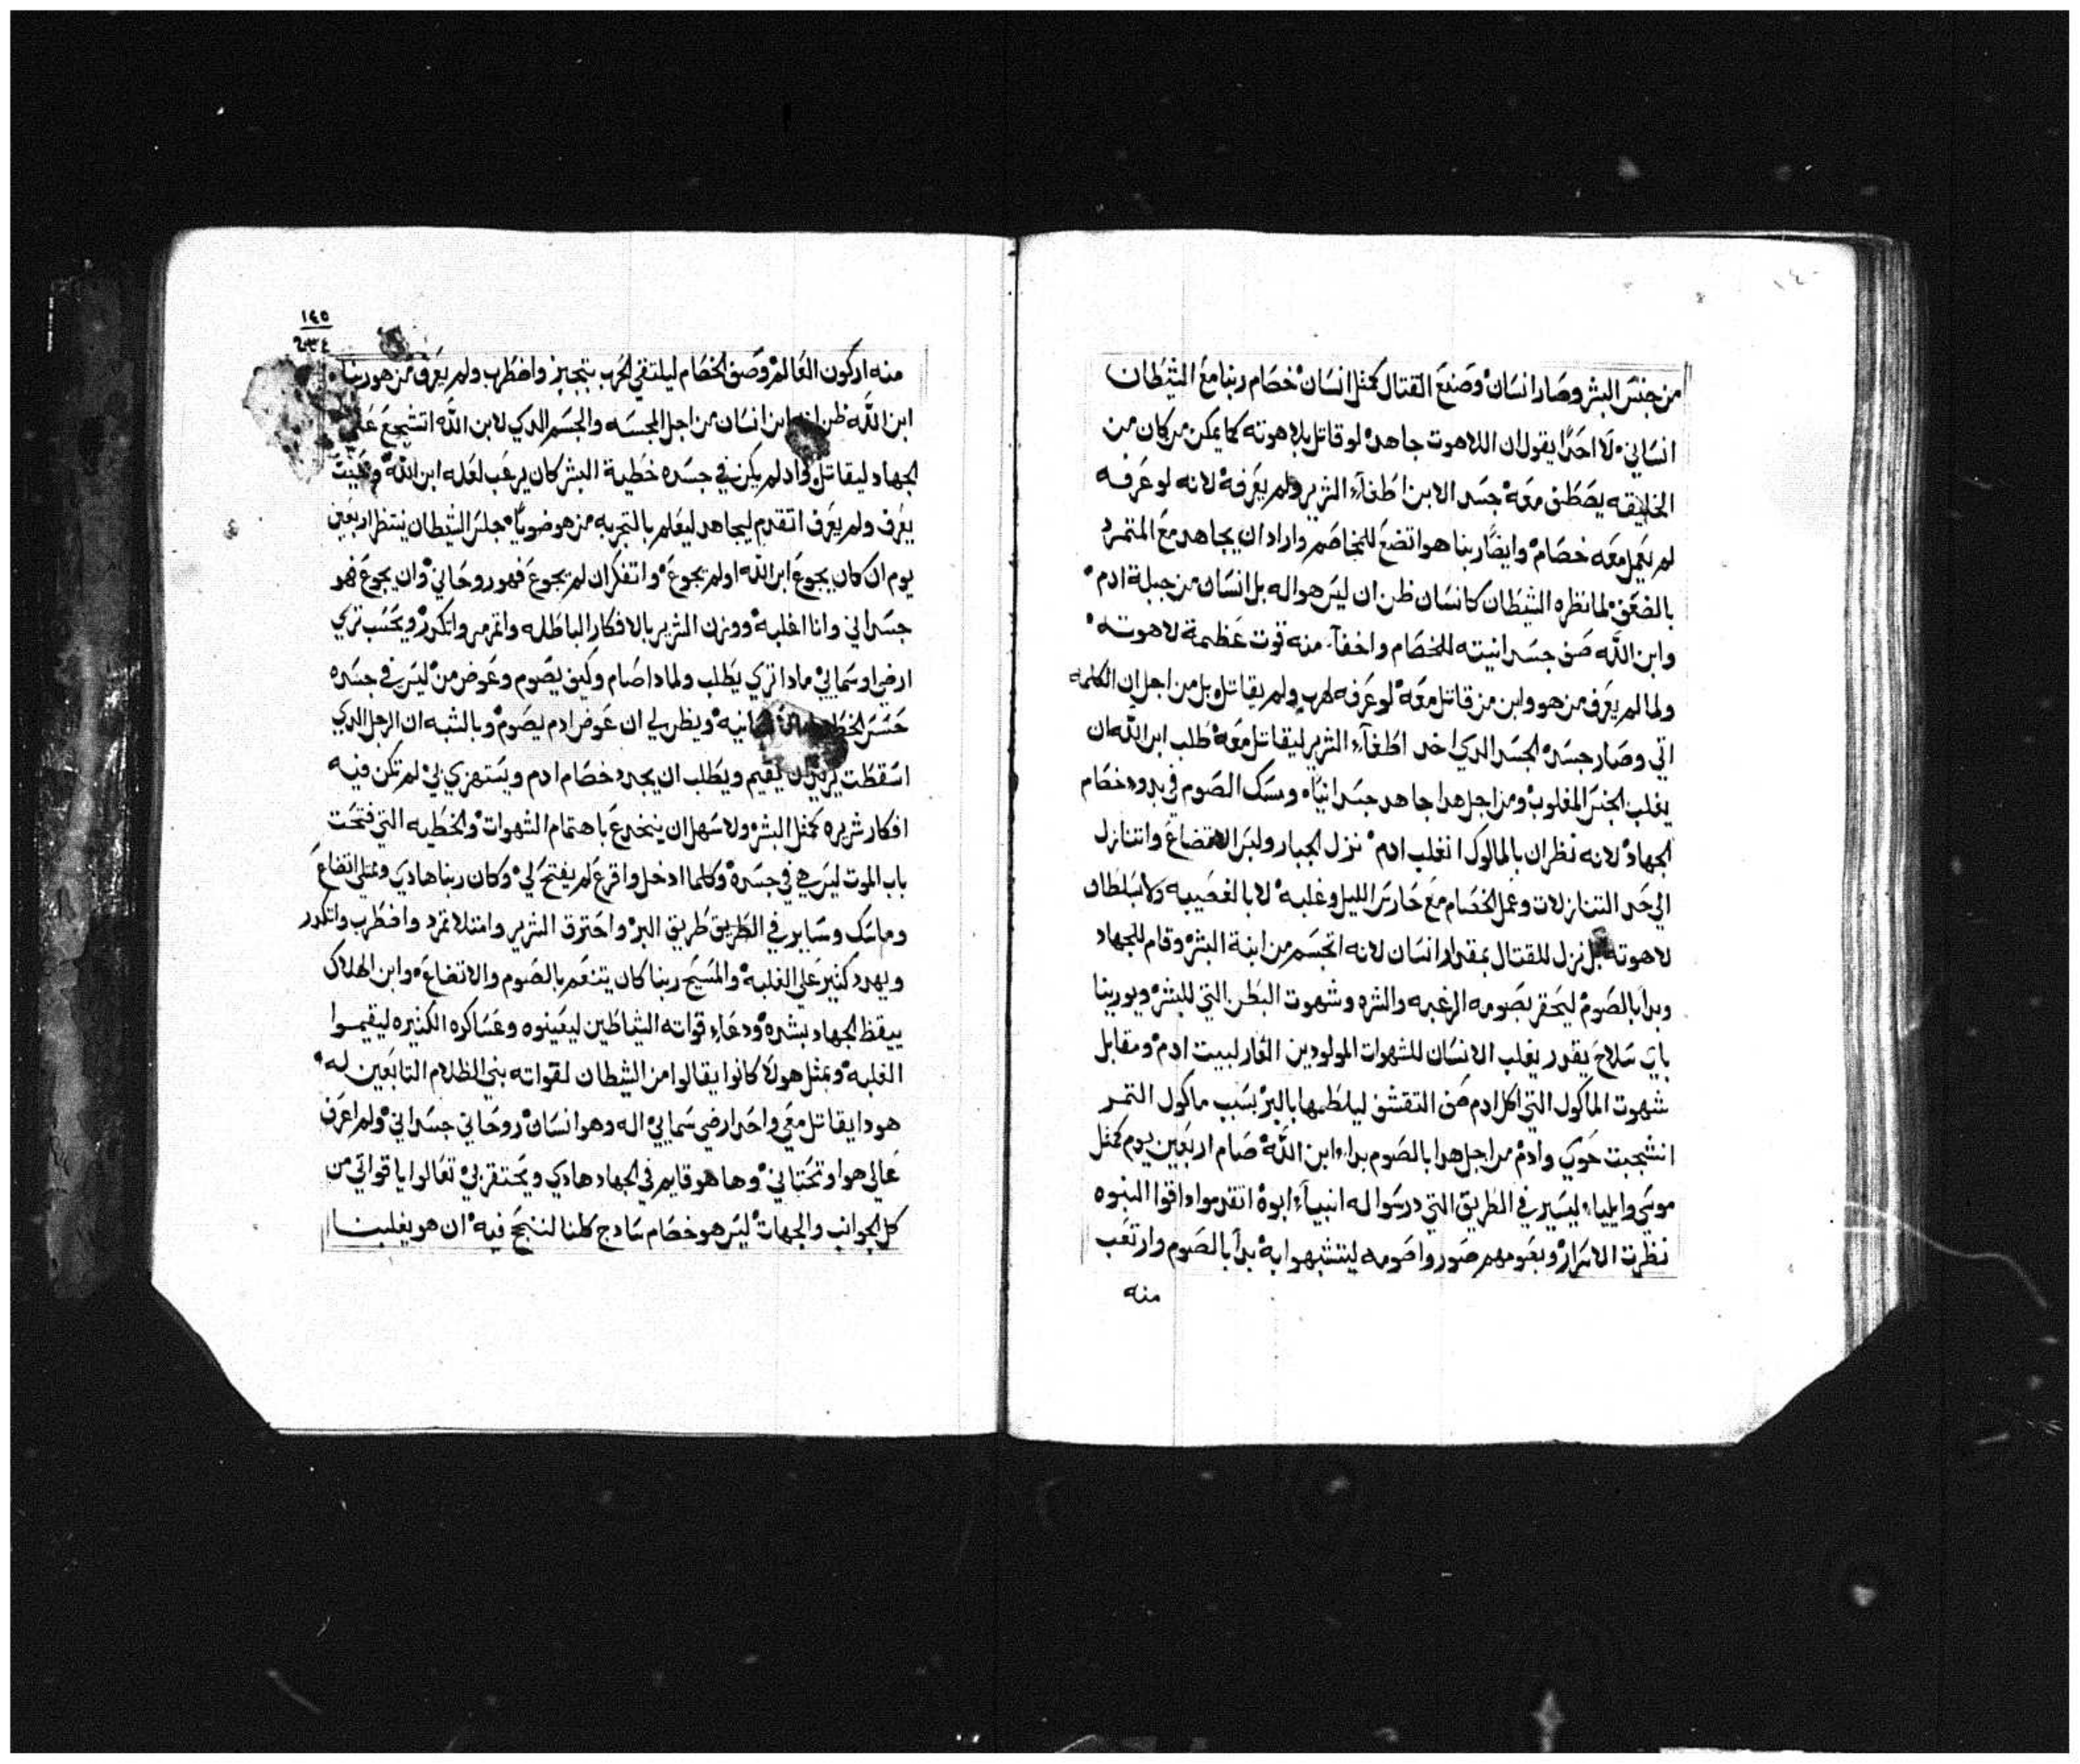 من جنس البشر وصار انسان وصنع القتال كمثل انسان خصام ربنا مع الشيطان
انساني لا احدًا يقول ان اللاهوت جاهد لو قاتل بلاهوته كما يمكن من كان من
الخليقه يصطف معه جسد الابن اطغآء الشرير ولم يعرفه لانه لو عرفه
لم يعمل معه خصام وايضًا ربنا هو اتضع للمخاصم واراد ان يجاهد مع المتمرد
بالضعف لما نظره الشيطان كانسان ظن ان ليس هو اله بل انسان من جبلة ادم
وابن الله صف جسدانيته للخصام واخفآ منه قوت عظيمة لاهوته
ولما لم يعرف من هو وابن من قاتل معه لو عرفه لهرب ولم يقاتله بل من اجل ان الكلمه
اتي وصار جسد الجسد الدي اخد اطغآء الشرير ليقاتل معه طلب ابن الله ان
يغلب الجنس المغلوب ومن اجل هدا جاهد جسدانيًا ومسك الصوم في بدوء خصام
الجهاد لانه نظر ان بالماكول انغلب ادم نزل الجبار ولبس الاتضاع واتنازل
الي حد التنازلات وعمل الخصام مع حارس الليل وغلبه لا بالغصيبه ولا بسلطان
لاهوته بل نزل للقتال بمقدار انسان لانه اتجسم من ابنة البشر وقام للجهاد
وبدا بالصوم ليحقر بصومه الرغبه والشره وشهوت البطن التي للبشر ويورينا
باي سلاح يقدر يغلب الانسان للشهوات المولودين العار لبيت ادم ومقابل
شهوت الماكول التي اكل ادم صف التقشف ليلطمها بالبر بسبب ماكول التمر
انشجبت حوي وادم من اجل هدا بالصوم بداء ابن الله صام اربعين يوم كمثل
موسي وايلياء ليسير في الطريق التي درسوا له انبيآء ابوه اتقدموا داقوا النبوه
نظرت الاسرار وبصومهم صوروا صومه ليتشبهوا به بدأ بالصوم وارتعب
منه
١٤٥
منه اركون العالم وصف الخصام ليلتقي الحرب بتجبر واضطرب ولم يعرف من هو ربنا
ابن الله ظن انه ابن انسان من اجل المجسه والجسم الدي لابن الله اتشجع علي
الجهاد ليقاتل واد لم يكن في جسده خطية البشر كان يرعب لعله ابن الله
يعرف ولم يعرف اتقدم ليجاهد ليعلم بالتجربه من هو ضويًا جلس الشيطان ينتظر اربعين
يوم ان كان يجوع ابن الله او لم يجوع واتفكر ان لم يجوع فهو روحاني وان يجوع فهو
جسداني وانا اغلبه ووزن الشرير بالافكار الباطله واتمرمر واتكدر ويحسب تري
ارضي او سمايي مادا تري يطلب ولمادا صام وكيف يصوم وعوض من ليس في جسده
ويظهر لي ان عوض ادم يصوم وبالشبه ان الرجل الدي
اسقطت يريد ان يقيم ويطلب ان يجدد خصام ادم ويستهزي بي لم تكن فيه
افكار شريره كمثل البشر ولا سهل ان ينخدع باهتمام الشهوات والخطيه التي فتحت
باب الموت ليس هي في جسده وكلما ادخل واقرع لم يفتح لي وكان ربنا هادي وممتلي اتضاع
وماسك وساير في الطريق طريق البر واحترق الشرير وامتلا تمرد واضطرب واتكدر
ويهدد كثير علي الغلبه والمسيح ربنا كان يتنعم بالصوم والاتضاع وابن الهلاك
ييقظ الجهاد بشره ودعاء قواته الشياطين ليعينوه وعساكره الكثيره ليقيموا
الغلبه وبمثل هولا كانوا يقالوا من الشيطان لقواته بني الظلام التابعين له
هودا يقاتل معي واحد ارضي سمايي اله وهو انسان روحاني جسداني ولم اعرف
عالي هو او تحتاني وها هو قايم في الجهاد هادي ويحتقر بي تعالوا يا قواتي من
كل الجوانب والجهات ليس هو خصام سادج كلنا لننجح فيه ان هو يغلبنا